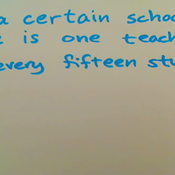 a certain schoo
e is one teac
every fifteen stu